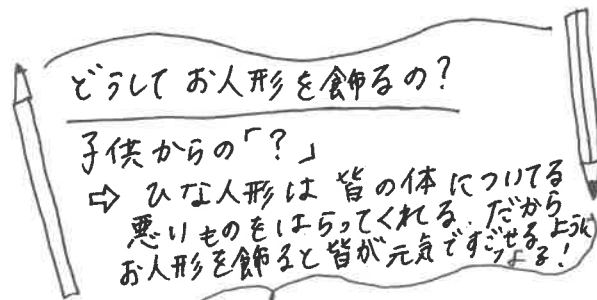 どうしてお人形を飾るの?
子供からの「?」
⇨ ひな人形は皆の体についてる
悪いものをはらってくれる。だから
お人形を飾ると皆が元気ですごせるように
なる!